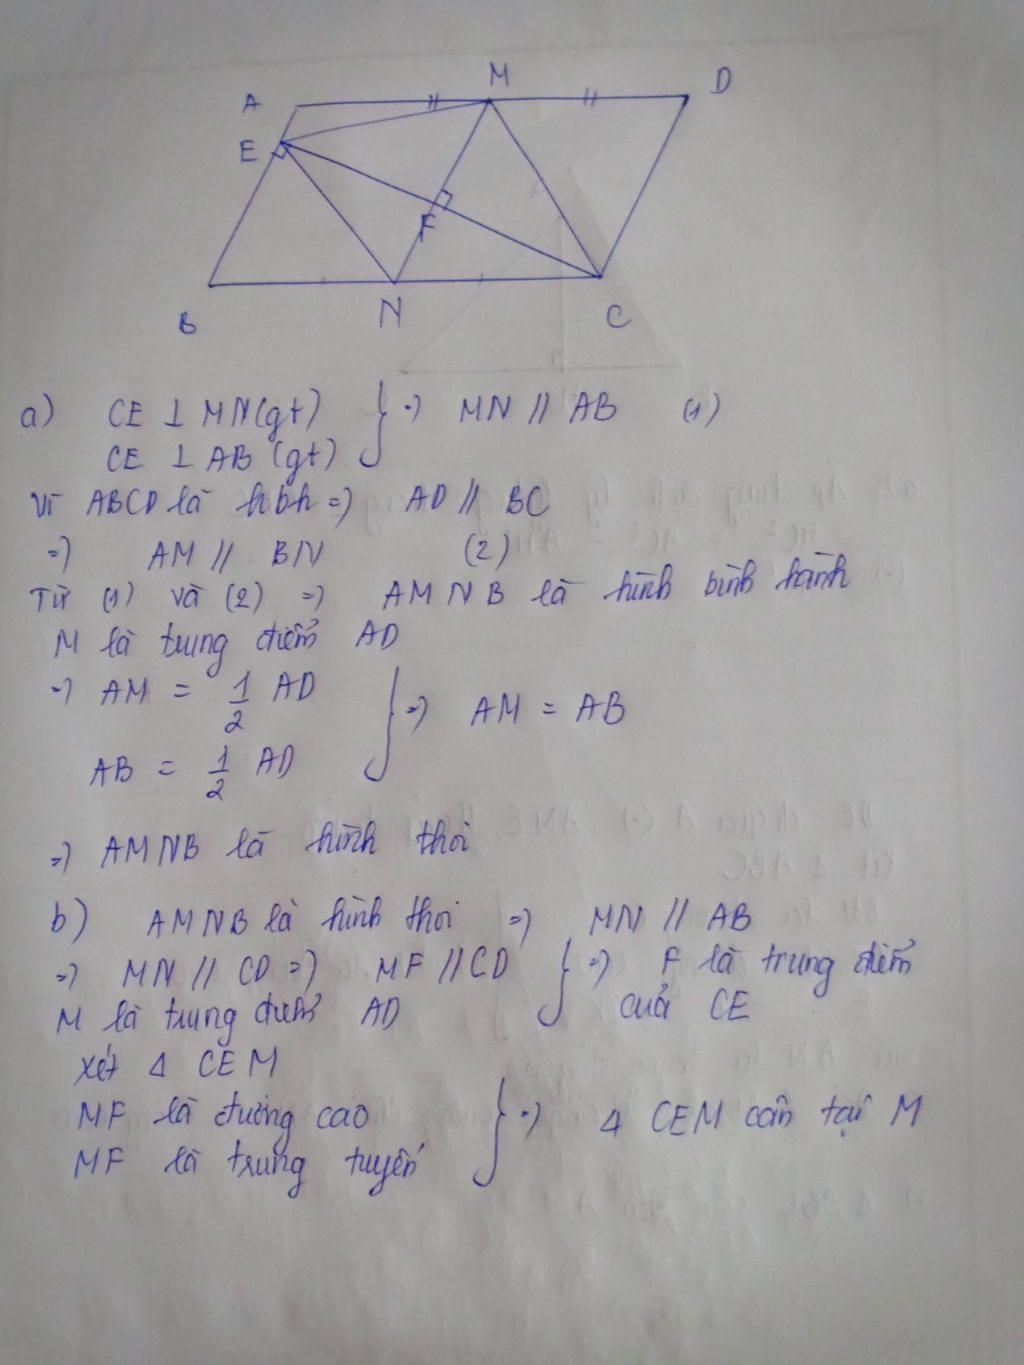 A
M
D
E
F
B
N
C
a) CE ⊥ MN (gt) } => MN // AB (1)
CE ⊥ AB (gt)
Vì ABCD là hbh => AD // BC
=> AM // BN (2)
Từ (1) và (2) => AMNB là hình bình hành
M là trung điểm AD
=> AM = 1/2 AD } => AM = AB
AB = 1/2 AD
=> AMNB là hình thoi
b) AMNB là hình thoi => MN // AB
=> MN // CD => MF // CD } => F là trung điểm
M là trung điểm AD của CE
xét Δ CEM
MF là đường cao } => Δ CEM cân tại M
MF là trung tuyến